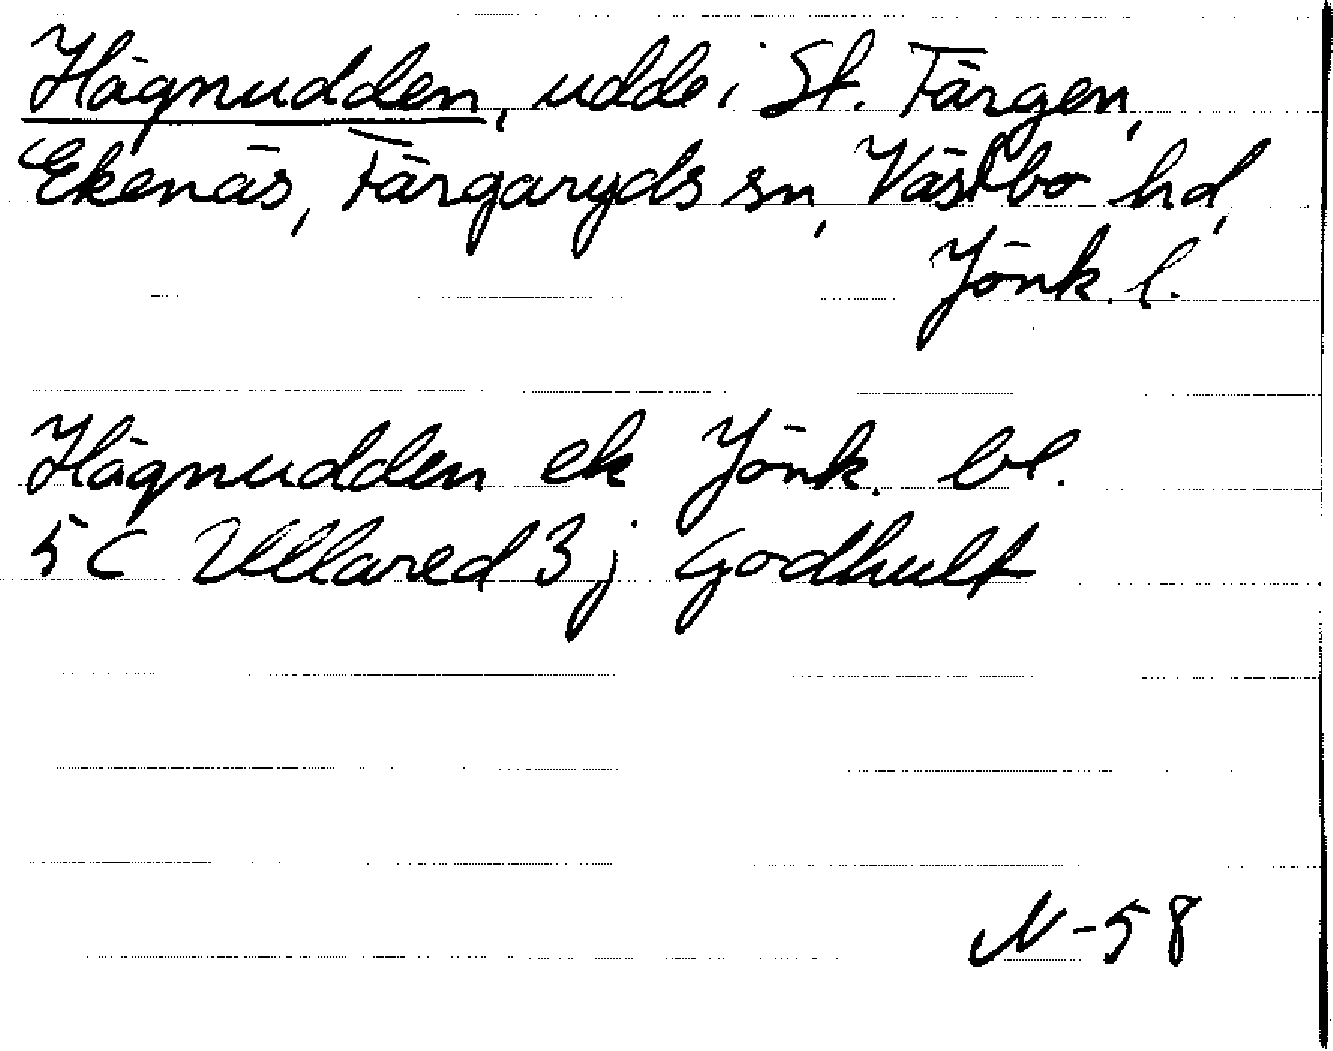 Hägnudden, udde i St. Färgen,
Ekenäs, Färgaryds sn, Västbo hd,
Jönk. l.
Hägnudden ek Jönk. bl.
5C Ullared 3 j Godhult
N-58